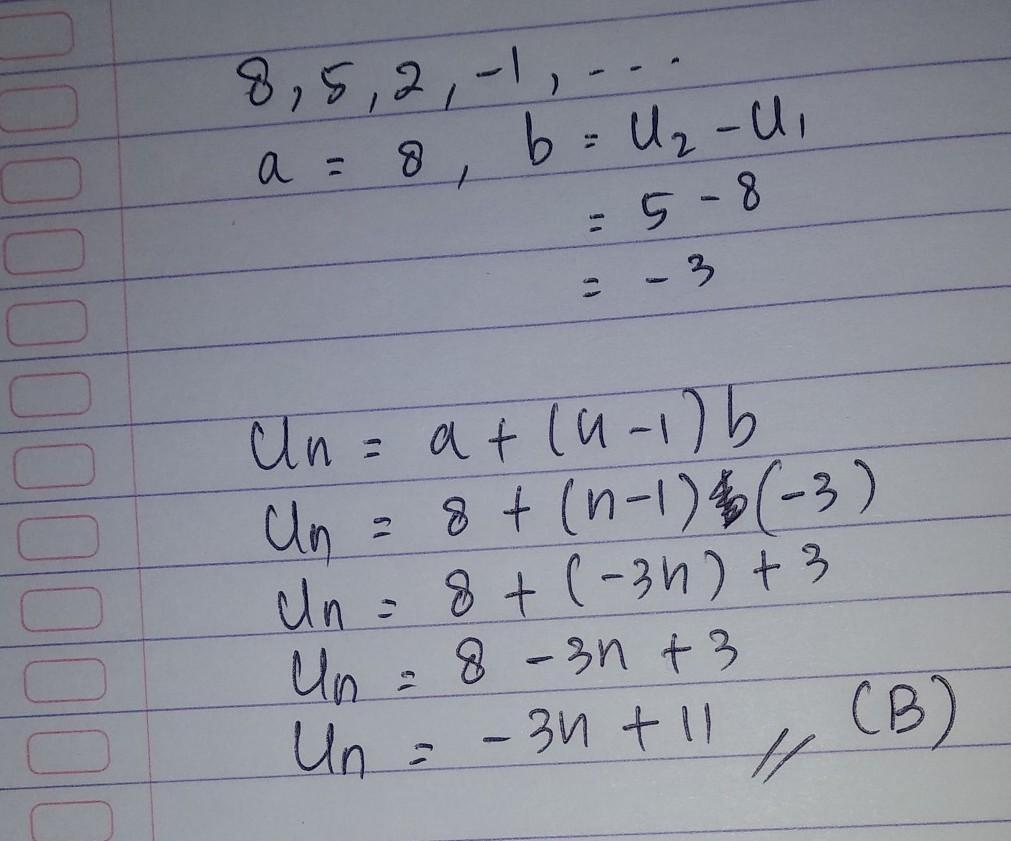 8, 5, 2, -1, ....
a = 8, b = U₂ - U₁
= 5 - 8
= - 3
Un = a + (n - 1) b
Un = 8 + (n-1) (-3)
Un = 8 + (-3n) + 3
Un = 8 - 3n + 3
Un = - 3n + 11 // (B)